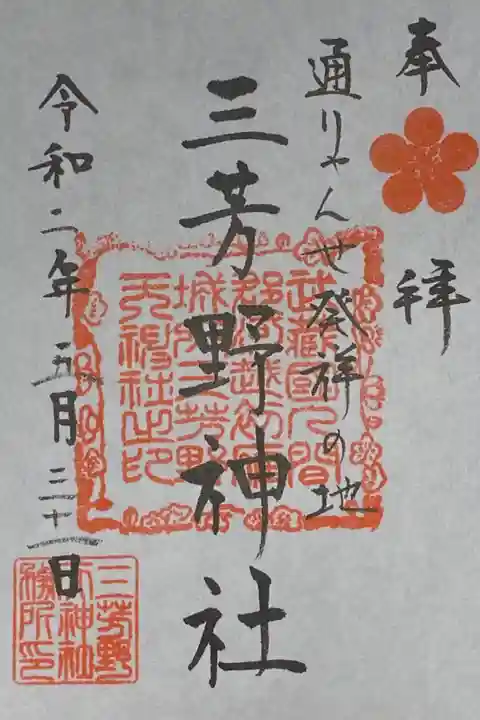 奉拝
通りゃんせ発祥の地
三芳野神社
令和二年五月三十一日
武蔵國入間
郡河越初雁
城内三芳野
天神社之印
三芳野
神社
務所印